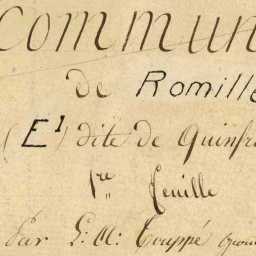 Commun
de Romillé
(E¹) dite de Quinfr
1re feuille
Par L: A: Couppé